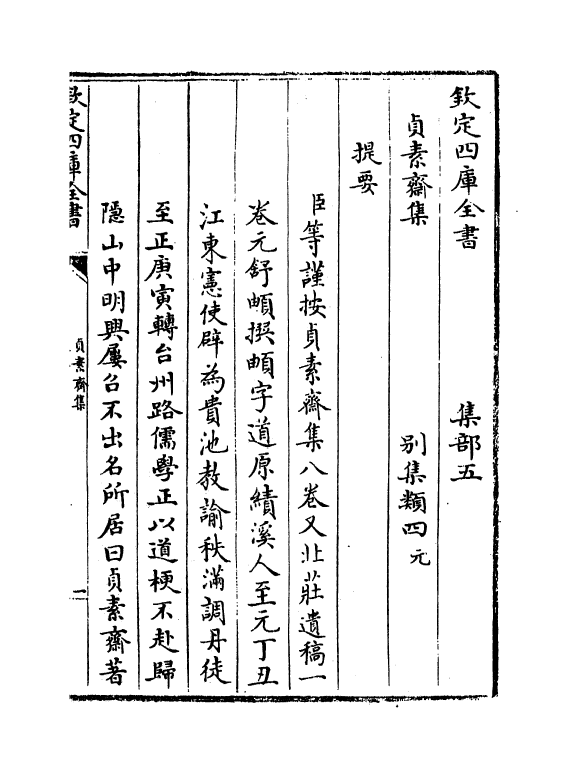 欽定四庫全書　集部五
貞素齋集　別集類四元
提要
臣等謹按貞素齋集八卷又北莊遺稿一
卷元舒頔撰頔字道原績溪人至元丁丑
江東憲使辟為貴池教諭秩滿調丹徒
至正庚寅轉台州路儒學正以道梗不赴歸
隱山中明興屢召不出名所居曰貞素齋著
欽定四庫全書　貞素齋集　一